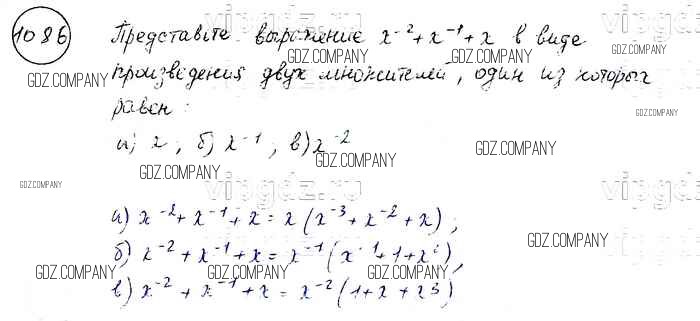 1086 Представьте выражение x⁻²+x⁻¹+x в виде
произведения двух множителей, один из которых
равен:
а) x, б) x⁻¹, в) x⁻²
а) x⁻²+x⁻¹+x = x(x⁻³+x⁻²+x);
б) x⁻²+x⁻¹+x = x⁻¹(x⁻¹+1+x²),
в) x⁻²+x⁻¹+x = x⁻²(1+x+x³)
vipgdz.ru
vipgdz.ru
vipgdz.ru
vipgdz.ru
GDZ.COMPANY
GDZ.COMPANY
GDZ.COMPANY
GDZ.COMPANY
GDZ.COMPANY
GDZ.COMPANY
GDZ.COMPANY
GDZ.COMPANY
GDZ.COMPANY
GDZ.COMPANY
GDZ.COMPANY
GDZ.COMPANY
GDZ.COMPANY
GDZ.COMPANY